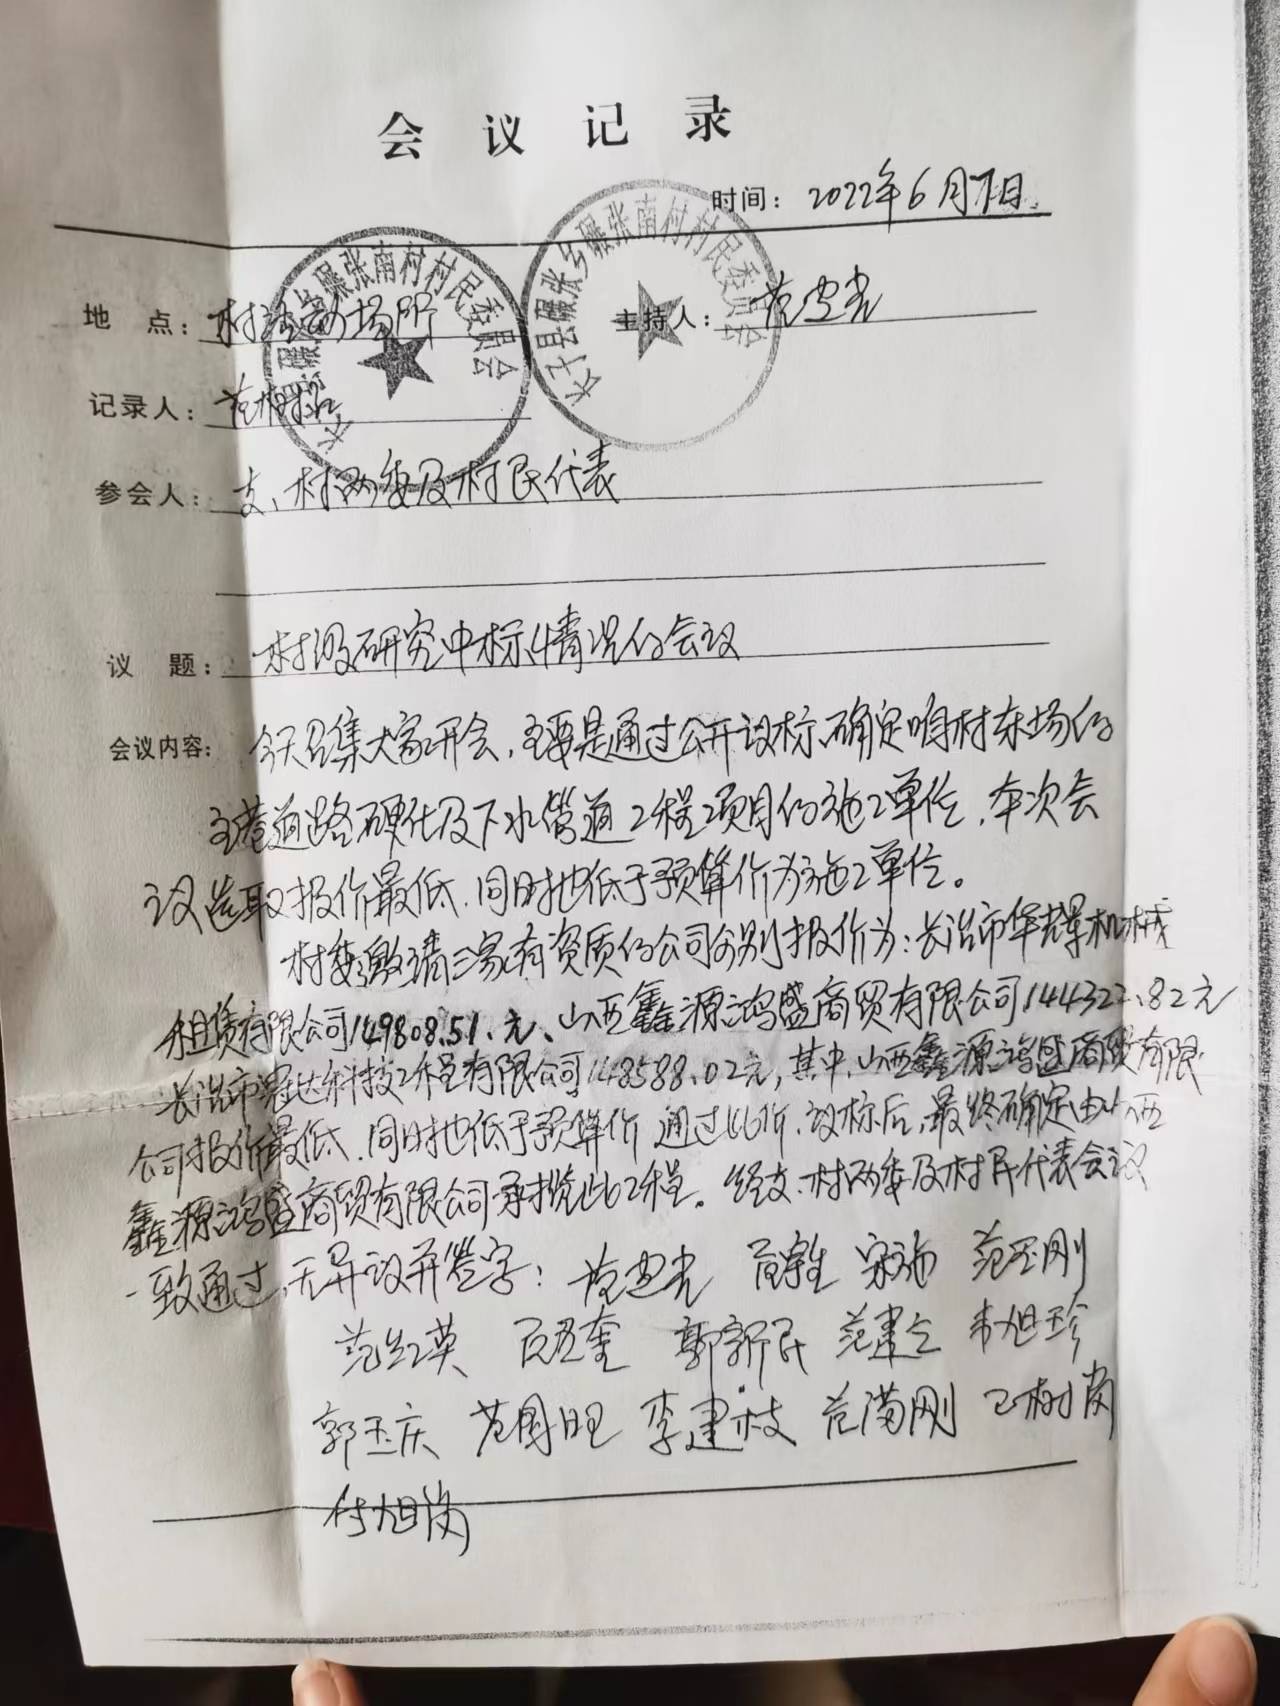 会议记录
时间：2022年6月7日
长子县碾张乡碾张南村村民委员会
长子县碾张乡碾张南村村民委员会
地点：村活动场所 主持人：范忠光
记录人：范树岗
参会人：支、村两委及村民代表
议题：村级研究中标情况的会议
会议内容：今天召集大家开会，主要是通过公开议标，确定咱村东场的
主巷道路硬化及下水管道工程项目的施工单位，本次会
议选取报价最低，同时也低于预算价为施工单位。
村委邀请三家有资质的公司分别报价为：长治市华辉机械
租赁有限公司149808.51.元、山西鑫源鸿盛商贸有限公司144322.82元
长治市冠达科技工程有限公司148588.02元，其中，山西鑫源鸿盛商贸有限
公司报价最低，同时也低于预算价 通过比价、议标后，最终确定由山西
鑫源鸿盛商贸有限公司承揽此工程。经支、村两委及村民代表会议
一致通过，无异议并签字：范忠光 宋施 范玉刚
范红英 郭新民 范建立 韦旭珍
郭玉庆 范国旺 李建枝 范满刚 王树岗
付旭岗